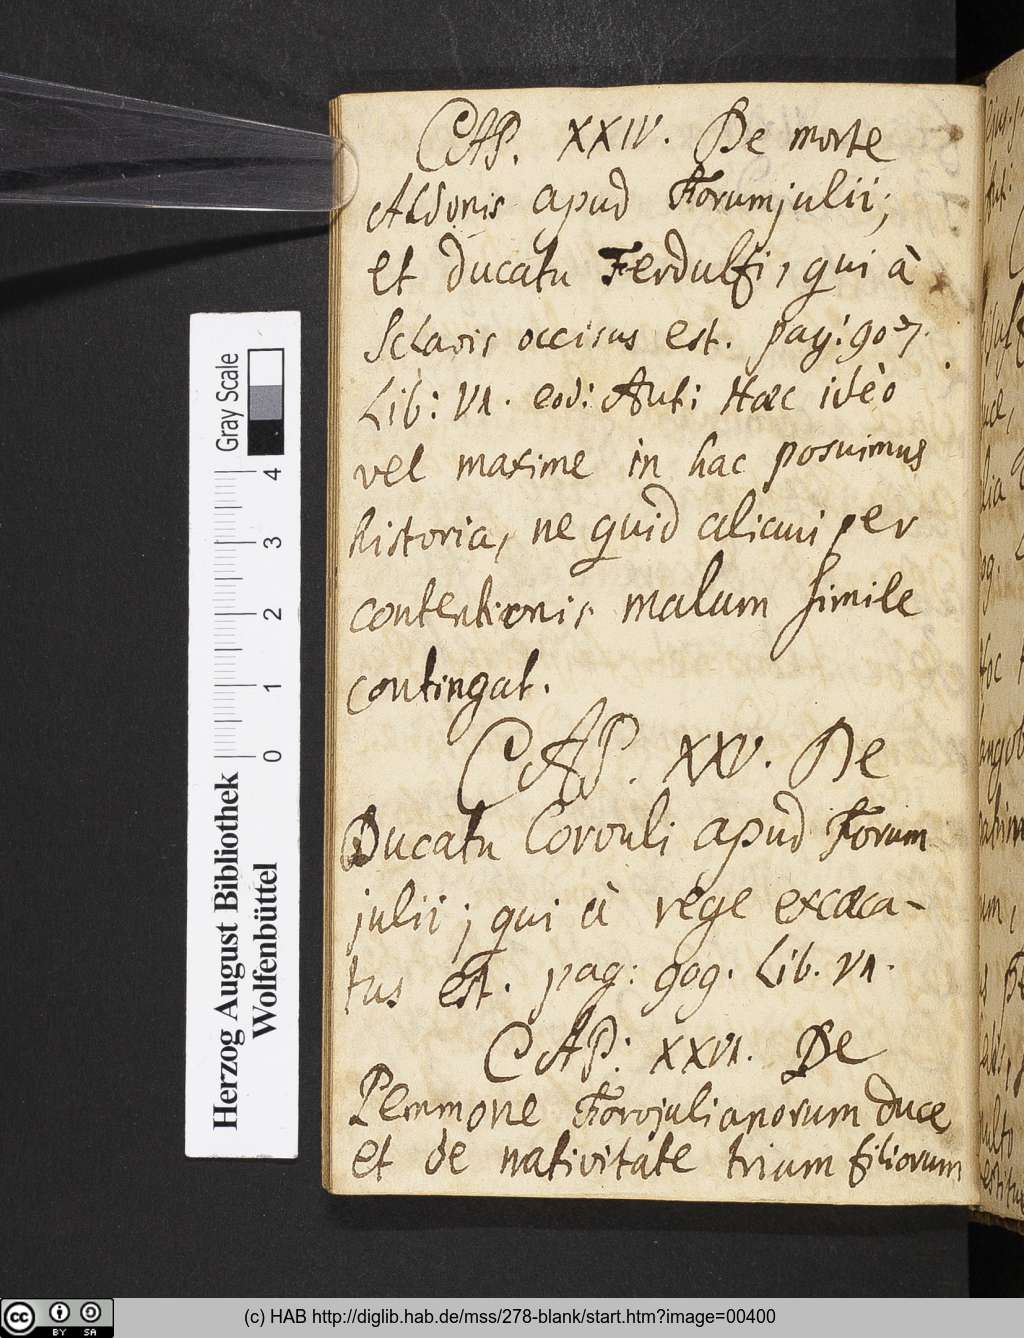 CAP. XXIV. De morte
Aldonis apud Forumjulii;
et ducatu Ferdulfi, qui à
Sclavis occisus est. pag: 907.
Lib: VI. eod: Aut: Hæc ideò
vel maxime in hac posuimus
historia, ne quid alicui per
contentionis malum simile
contingat.
CAP. XXV. De
Ducatu Corvuli apud Forum
julii; qui à rege excæca-
tus est. pag: 909. Lib. VI.
CAP: XXVI. De
Pemmone Forojulianorum duce
et de nativitate trium filiorum
Gray Scale
0 1 2 3 4
Herzog August Bibliothek
Wolfenbüttel
cc BY SA
(c) HAB http://diglib.hab.de/mss/278-blank/start.htm?image=00400